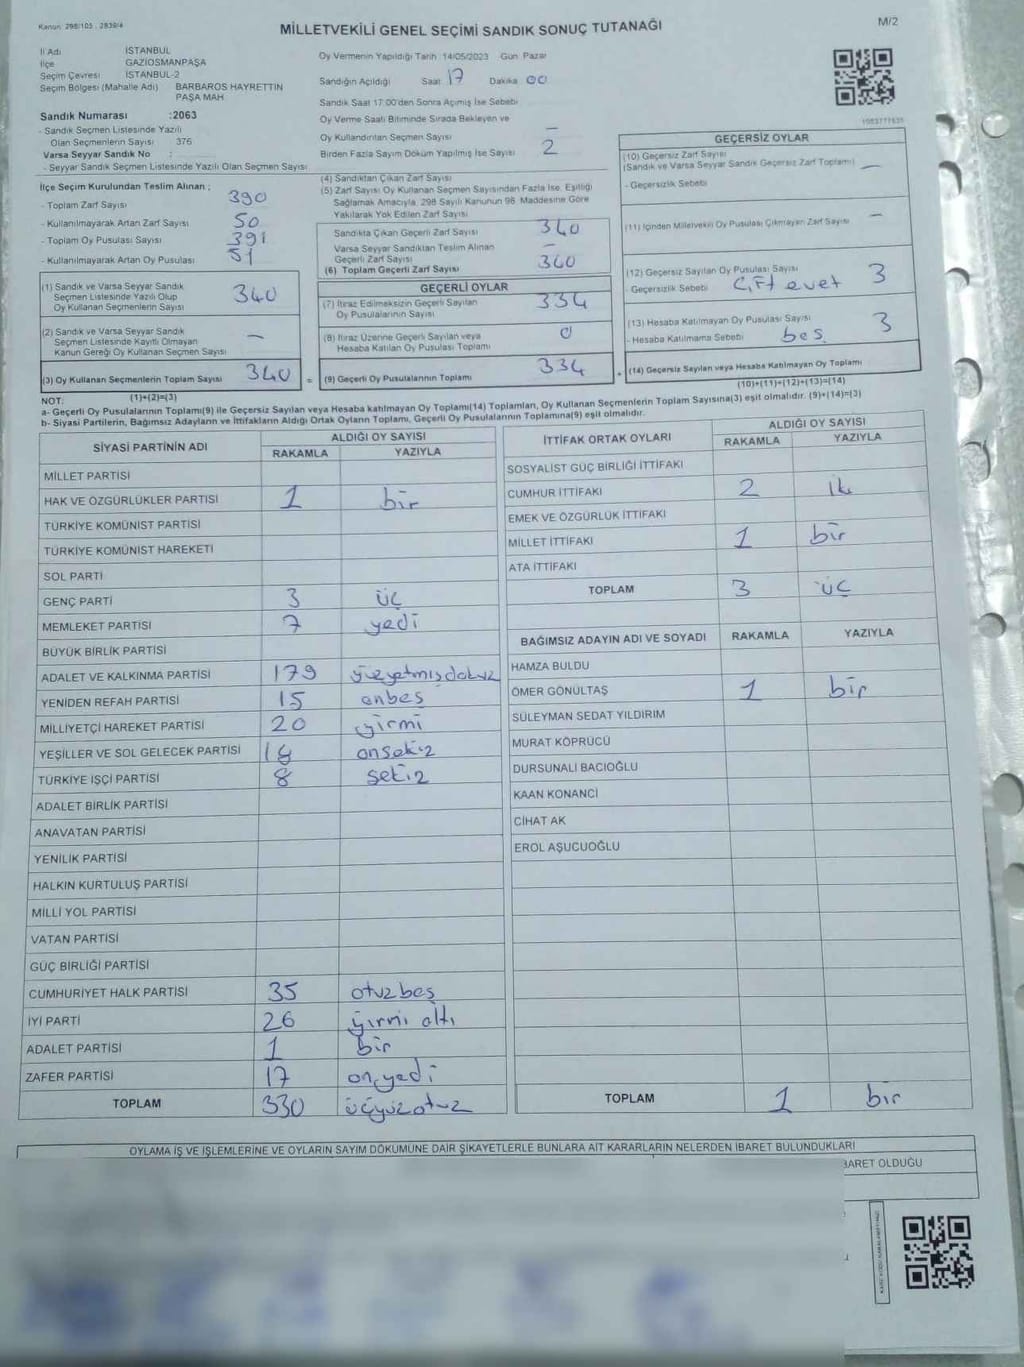 Kanun 298/105 , 2839/4
MİLLETVEKİLİ GENEL SEÇİMİ SANDIK SONUÇ TUTANAĞI
M/2
İl Adı İSTANBUL
İlçe GAZİOSMANPAŞA
Seçim Çevresi İSTANBUL-2
Seçim Bölgesi (Mahalle Adı) BARBAROS HAYRETTIN PAŞA MAH
Sandık Numarası :2063
- Sandık Seçmen Listesinde Yazılı
Olan Seçmenlerin Sayısı : 376
Varsa Seyyar Sandık No :
- Seyyar Sandık Seçmen Listesinde Yazılı Olan Seçmen Sayısı
Oy Vermenin Yapıldığı Tarih 14/05/2023 Gün Pazar
Sandığın Açıldığı Saat 17 Dakika 00
Sandık Saat 17.00'den Sonra Açımış İse Sebebi
Oy Verme Saati Bitiminde Sırada Bekleyen ve
Oy Kullandırılan Seçmen Sayısı –
Birden Fazla Sayım Döküm Yapılmış İse Sayısı 2
İlçe Seçim Kurulundan Teslim Alınan ;
- Toplam Zarf Sayısı 390
- Kullanılmayarak Artan Zarf Sayısı 50
- Toplam Oy Pusulası Sayısı 391
- Kullanılmayarak Artan Oy Pusulası 51
(1) Sandık ve Varsa Seyyar Sandık
Seçmen Listesinde Yazılı Olup
Oy Kullanan Seçmenlerin Sayısı 340
(2) Sandık ve Varsa Seyyar Sandık
Seçmen Listesinde Kayıtlı Olmayan
Kanun Gereği Oy Kullanan Seçmen Sayısı –
(3) Oy Kullanan Seçmenlerin Toplam Sayısı 340
(1)+(2)=(3)
(4) Sandıktan Çıkan Zarf Sayısı
(5) Zarf Sayısı Oy Kullanan Seçmen Sayısından Fazla İse, Eşitliği
Sağlamak Amacıyla, 298 Sayılı Kanunun 98. Maddesine Göre
Yakılarak Yok Edilen Zarf Sayısı
Sandıkta Çıkan Geçerli Zarf Sayısı 340
Varsa Seyyar Sandıktan Teslim Alınan
Geçerli Zarf Sayısı –
(6) Toplam Geçerli Zarf Sayısı 340
GEÇERLİ OYLAR
(7) İtiraz Edilmeksizin Geçerli Sayılan
Oy Pusulalarının Sayısı 334
(8) İtiraz Üzerine Geçerli Sayılan veya
Hesaba Katılan Oy Pusulası Toplamı 0
= (9) Geçerli Oy Pusulalarının Toplamı 334
GEÇERSİZ OYLAR
(10) Geçersiz Zarf Sayısı
(Sandık ve Varsa Seyyar Sandık Geçersiz Zarf Toplamı) –
- Geçersizlik Sebebi
(11) İçinden Milletvekili Oy Pusulası Çıkmayan Zarf Sayısı –
(12) Geçersiz Sayılan Oy Pusulası Sayısı 3
- Geçersizlik Sebebi Çift evet
(13) Hesaba Katılmayan Oy Pusulası Sayısı 3
- Hesaba Katılmama Sebebi beş
+ (14) Geçersiz Sayılan veya Hesaba Katılmayan Oy Toplamı
(10)+(11)+(12)+(13)=(14)
NOT:
a- Geçerli Oy Pusulalarının Toplamı(9) ile Geçersiz Sayılan veya Hesaba katılmayan Oy Toplamı(14) Toplamları, Oy Kullanan Seçmenlerin Toplam Sayısına(3) eşit olmalıdır. (9)+(14)=(3)
b- Siyasi Partilerin, Bağımsız Adayların ve İttifakların Aldığı Ortak Oyların Toplamı, Geçerli Oy Pusulalarının Toplamına(9) eşit olmalıdır.
SİYASİ PARTİNİN ADI ALDIĞI OY SAYISI
RAKAMLA YAZIYLA
MİLLET PARTİSİ
HAK VE ÖZGÜRLÜKLER PARTİSİ 1 bir
TÜRKİYE KOMÜNIST PARTİSİ
TÜRKİYE KOMÜNİST HAREKETİ
SOL PARTİ
GENÇ PARTİ 3 üç
MEMLEKET PARTİSİ 7 yedi
BÜYÜK BİRLİK PARTİSİ
ADALET VE KALKINMA PARTİSİ 179 yüzyetmişdokuz
YENİDEN REFAH PARTİSİ 15 onbeş
MİLLİYETÇİ HAREKET PARTİSİ 20 yirmi
YEŞİLLER VE SOL GELECEK PARTİSİ 18 onsekiz
TÜRKİYE İŞÇİ PARTİSİ 8 sekiz
ADALET BİRLİK PARTİSİ
ANAVATAN PARTİSİ
YENİLİK PARTİSİ
HALKIN KURTULUŞ PARTİSİ
MİLLİ YOL PARTİSİ
VATAN PARTİSİ
GÜÇ BİRLİĞİ PARTİSİ
CUMHURİYET HALK PARTİSİ 35 otuzbeş
İYİ PARTİ 26 yirmi altı
ADALET PARTİSİ 1 bir
ZAFER PARTİSİ 17 onyedi
TOPLAM 330 üçyüzotuz
İTTİFAK ORTAK OYLARI ALDIĞI OY SAYISI
RAKAMLA YAZIYLA
SOSYALİST GÜÇ BİRLİĞİ İTTİFAKI
CUMHUR İTTİFAKI 2 iki
EMEK VE ÖZGÜRLÜK İTTİFAKI
MİLLET İTTİFAKI 1 bir
ATA İTTİFAKI
TOPLAM 3 üç
BAĞIMSIZ ADAYIN ADI VE SOYADI RAKAMLA YAZIYLA
HAMZA BULDU
ÖMER GÖNÜLTAŞ 1 bir
SÜLEYMAN SEDAT YILDIRIM
MURAT KÖPRÜCÜ
DURSUNALİ BACIOĞLU
KAAN KONANCİ
CİHAT AK
EROL AŞUCUOĞLU
TOPLAM 1 bir
OYLAMA İŞ VE İŞLEMLERİNE VE OYLARIN SAYIM DÖKÜMÜNE DAİR ŞİKAYETLERLE BUNLARA AİT KARARLARIN NELERDEN İBARET BULUNDUKLARI
BARET OLDUĞU